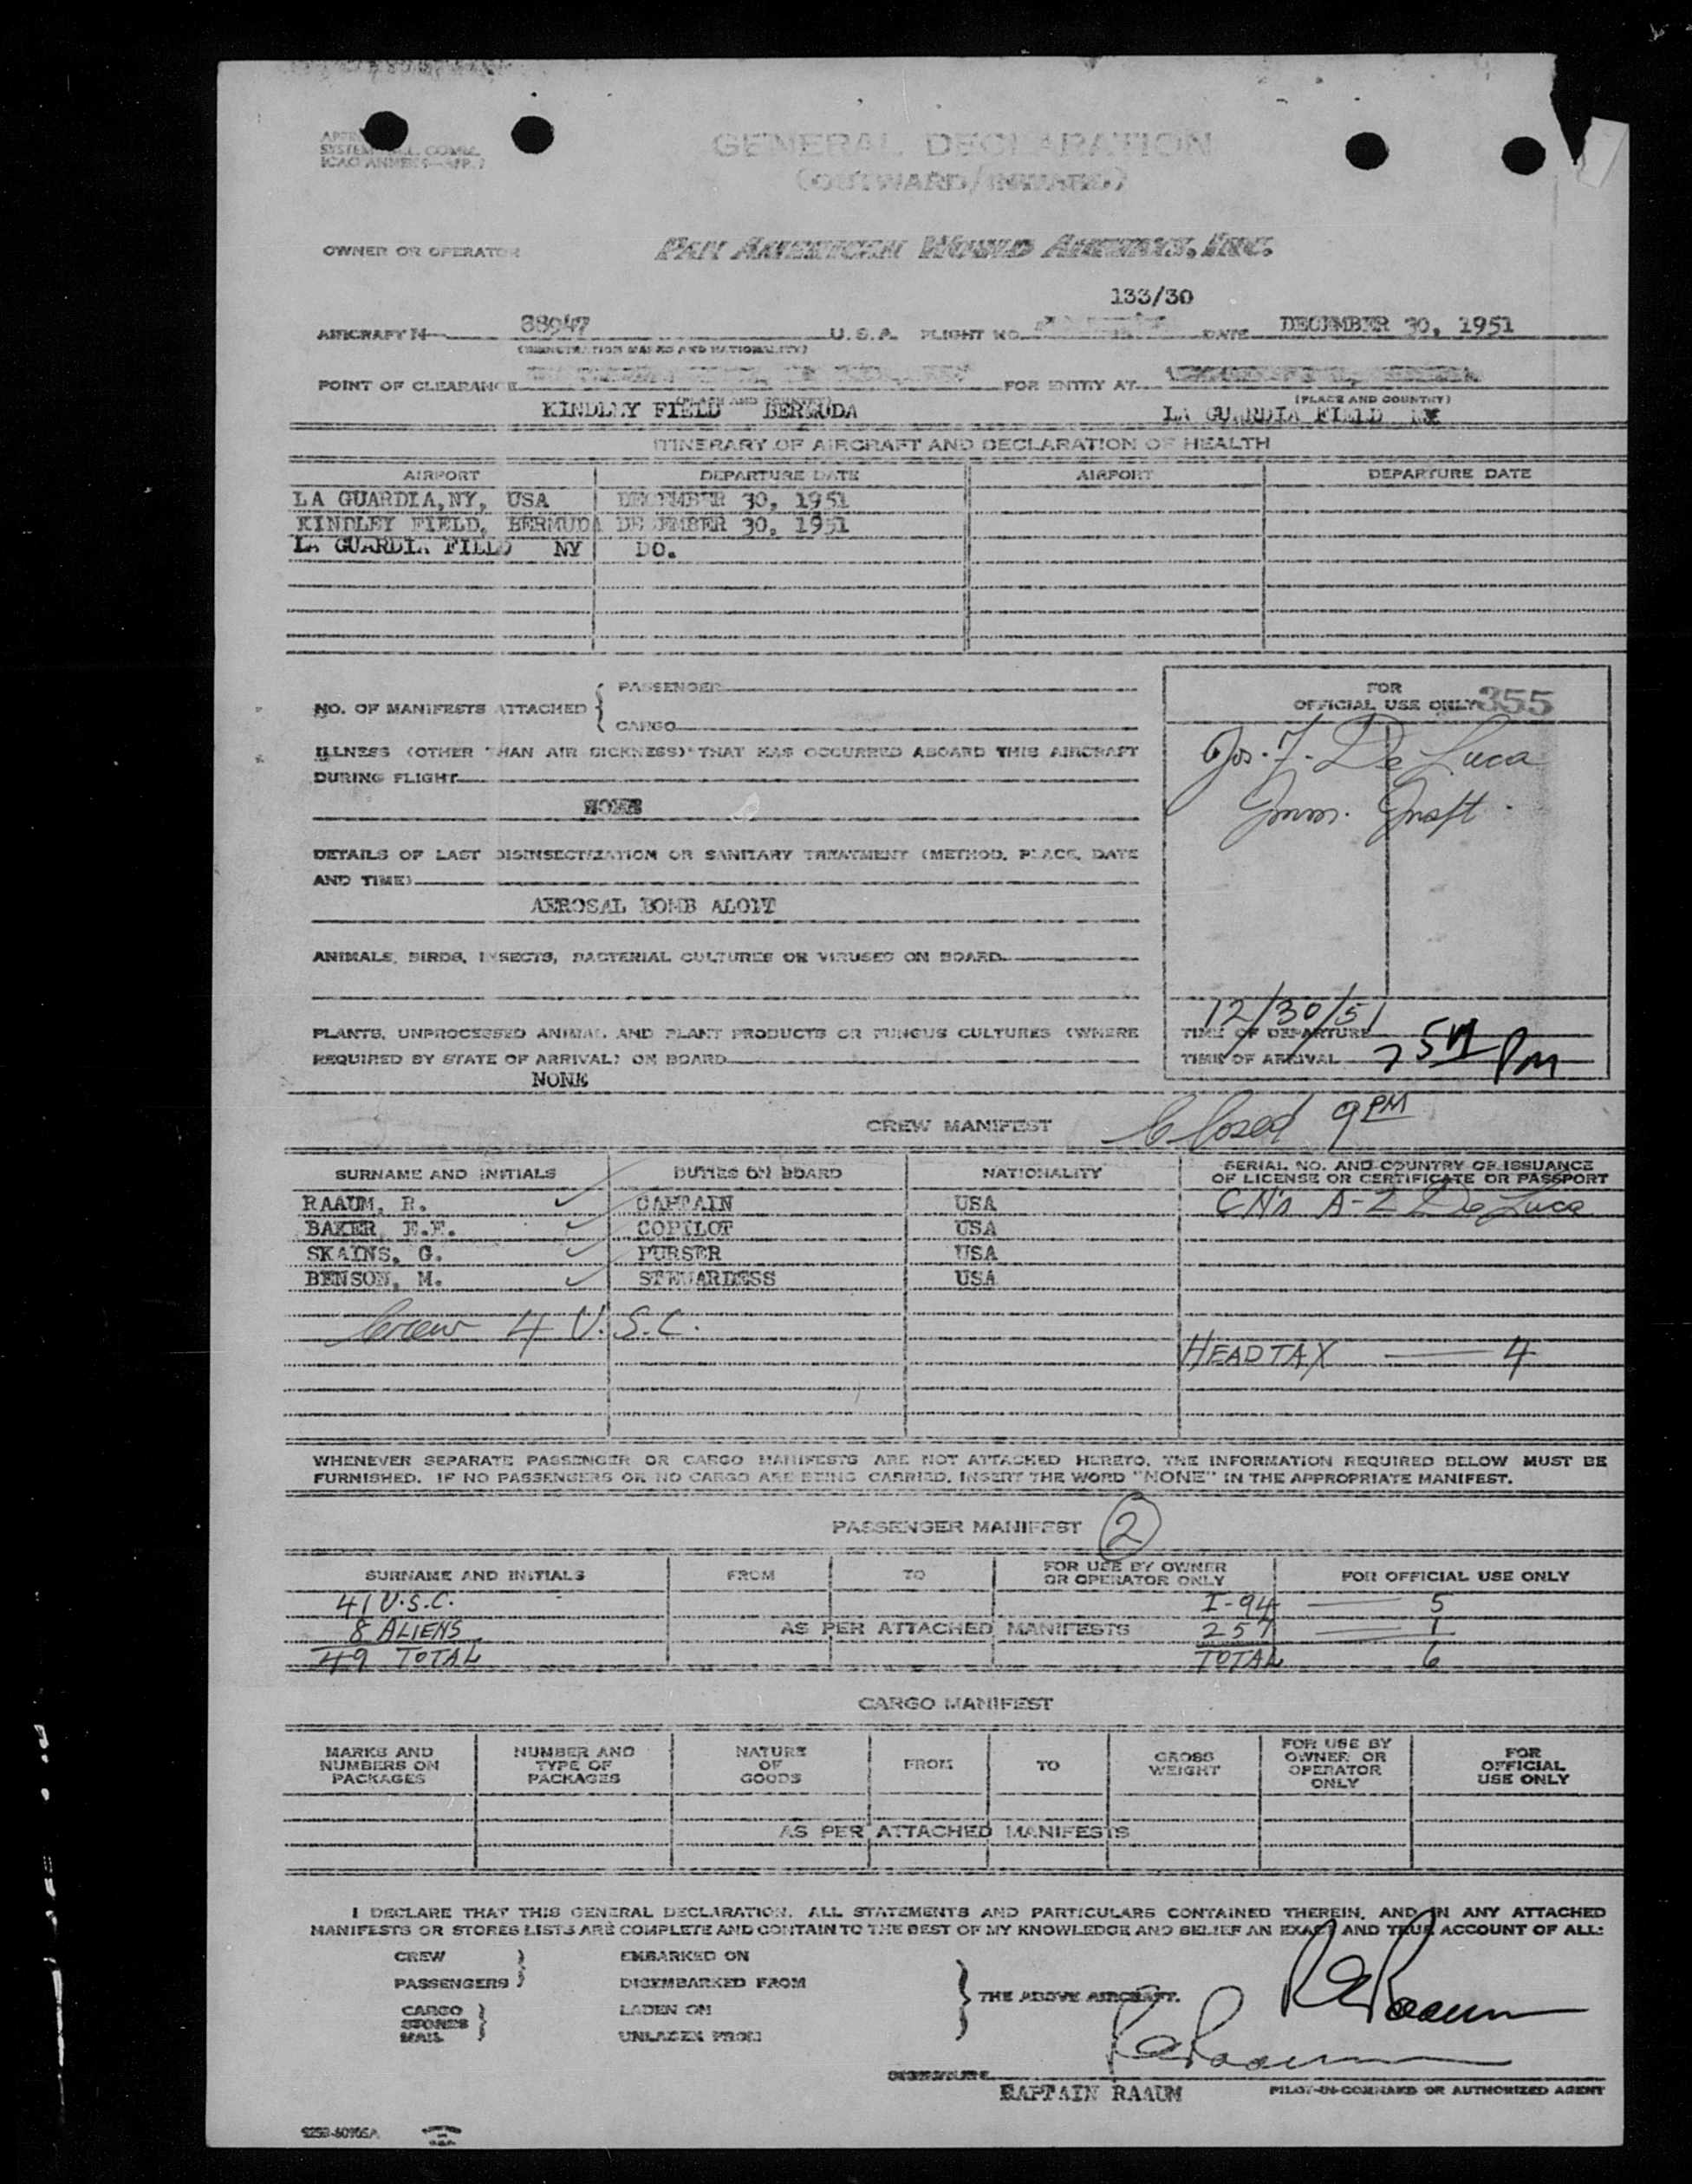 GENERAL DECLARATION
(OUTWARD/INWARD)
OWNER OR OPERATOR PAN AMERICAN WORLD AIRWAYS, INC.
133/30
AIRCRAFT N 88947 U.S.A. FLIGHT NO. DATE DECEMBER 30, 1951
(REGISTRATION MARKS AND NATIONALITY)
POINT OF CLEARANCE FOR ENTRY AT
(PLACE AND COUNTRY) (PLACE AND COUNTRY)
KINDLEY FIELD BERMUDA LA GUARDIA FIELD NY
ITINERARY OF AIRCRAFT AND DECLARATION OF HEALTH
AIRPORT DEPARTURE DATE AIRPORT DEPARTURE DATE
LA GUARDIA, NY, USA DECEMBER 30, 1951
KINDLEY FIELD, BERMUDA DECEMBER 30, 1951
LA GUARDIA FIELD NY DO.
NO. OF MANIFESTS ATTACHED { PASSENGER
CARGO
FOR
OFFICIAL USE ONLY 355
Jos. F. De Luca
Imm. Inspt.
ILLNESS (OTHER THAN AIR SICKNESS) THAT HAS OCCURRED ABOARD THIS AIRCRAFT
DURING FLIGHT
NONE
DETAILS OF LAST DISINSECTIZATION OR SANITARY TREATMENT (METHOD, PLACE, DATE
AND TIME)
AEROSAL BOMB ALOIT
ANIMALS, BIRDS, INSECTS, BACTERIAL CULTURES OR VIRUSES ON BOARD
PLANTS, UNPROCESSED ANIMAL AND PLANT PRODUCTS OR FUNGUS CULTURES (WHERE
REQUIRED BY STATE OF ARRIVAL) ON BOARD
NONE
12/30/51
TIME OF DEPARTURE
TIME OF ARRIVAL PM
CREW MANIFEST Closed 9 PM
SURNAME AND INITIALS DUTIES ON BOARD NATIONALITY SERIAL NO. AND COUNTRY OF ISSUANCE
OF LICENSE OR CERTIFICATE OR PASSPORT
RAAUM, R. CAPTAIN USA A-2 De Luca
BAKER E.F. COPILOT USA
SKAINS, G. PURSER USA
BENSON, M. STEWARDESS USA
Crew 4 U.S.C.
HEADTAX — 4
WHENEVER SEPARATE PASSENGER OR CARGO MANIFESTS ARE NOT ATTACHED HERETO, THE INFORMATION REQUIRED BELOW MUST BE
FURNISHED. IF NO PASSENGERS OR NO CARGO ARE BEING CARRIED, INSERT THE WORD "NONE" IN THE APPROPRIATE MANIFEST.
PASSENGER MANIFEST 2
SURNAME AND INITIALS FROM TO FOR USE BY OWNER
OR OPERATOR ONLY FOR OFFICIAL USE ONLY
41 U.S.C. I-94 — 5
8 ALIENS AS PER ATTACHED MANIFESTS 257 — 1
49 TOTAL TOTAL 6
CARGO MANIFEST
MARKS AND
NUMBERS ON
PACKAGES
NUMBER AND
TYPE OF
PACKAGES
NATURE
OF
GOODS
FROM
TO
GROSS
WEIGHT
FOR USE BY
OWNER OR
OPERATOR
ONLY
FOR
OFFICIAL
USE ONLY
AS PER ATTACHED MANIFESTS
I DECLARE THAT THIS GENERAL DECLARATION, ALL STATEMENTS AND PARTICULARS CONTAINED THEREIN, AND IN ANY ATTACHED
MANIFESTS OR STORES LISTS ARE COMPLETE AND CONTAIN TO THE BEST OF MY KNOWLEDGE AND BELIEF AN EXACT AND TRUE ACCOUNT OF ALL:
CREW } EMBARKED ON
PASSENGERS } DISEMBARKED FROM
CARGO } LADEN ON
STORES
MAIL UNLADEN FROM
} THE ABOVE AIRCRAFT.
R Raaum
R Raaum
SIGNATURE
CAPTAIN RAAUM PILOT-IN-COMMAND OR AUTHORIZED AGENT